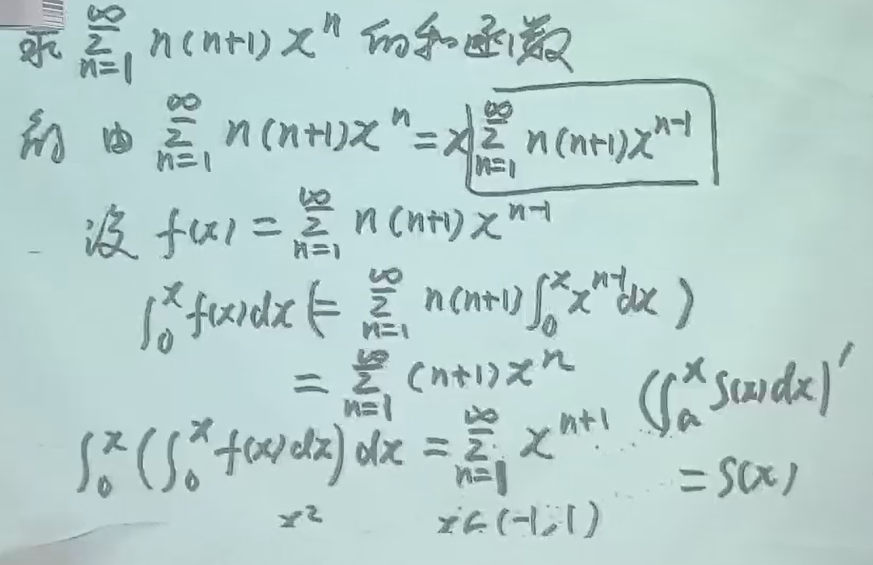 求 ∑_{n=1}^{∞} n(n+1)x^n 的和函数
解 由 ∑_{n=1}^{∞} n(n+1)x^n = x ∑_{n=1}^{∞} n(n+1)x^{n-1}
设 f(x) = ∑_{n=1}^{∞} n(n+1)x^{n-1}
∫_0^x f(x)dx (= ∑_{n=1}^{∞} n(n+1)∫_0^x x^{n-1}dx)
= ∑_{n=1}^{∞} (n+1)x^n
(∫_a^x S(x)dx)′
∫_0^x (∫_0^x f(x)dx)dx = ∑_{n=1}^{∞} x^{n+1}
= S(x)
x^2 x∈(-1,1)